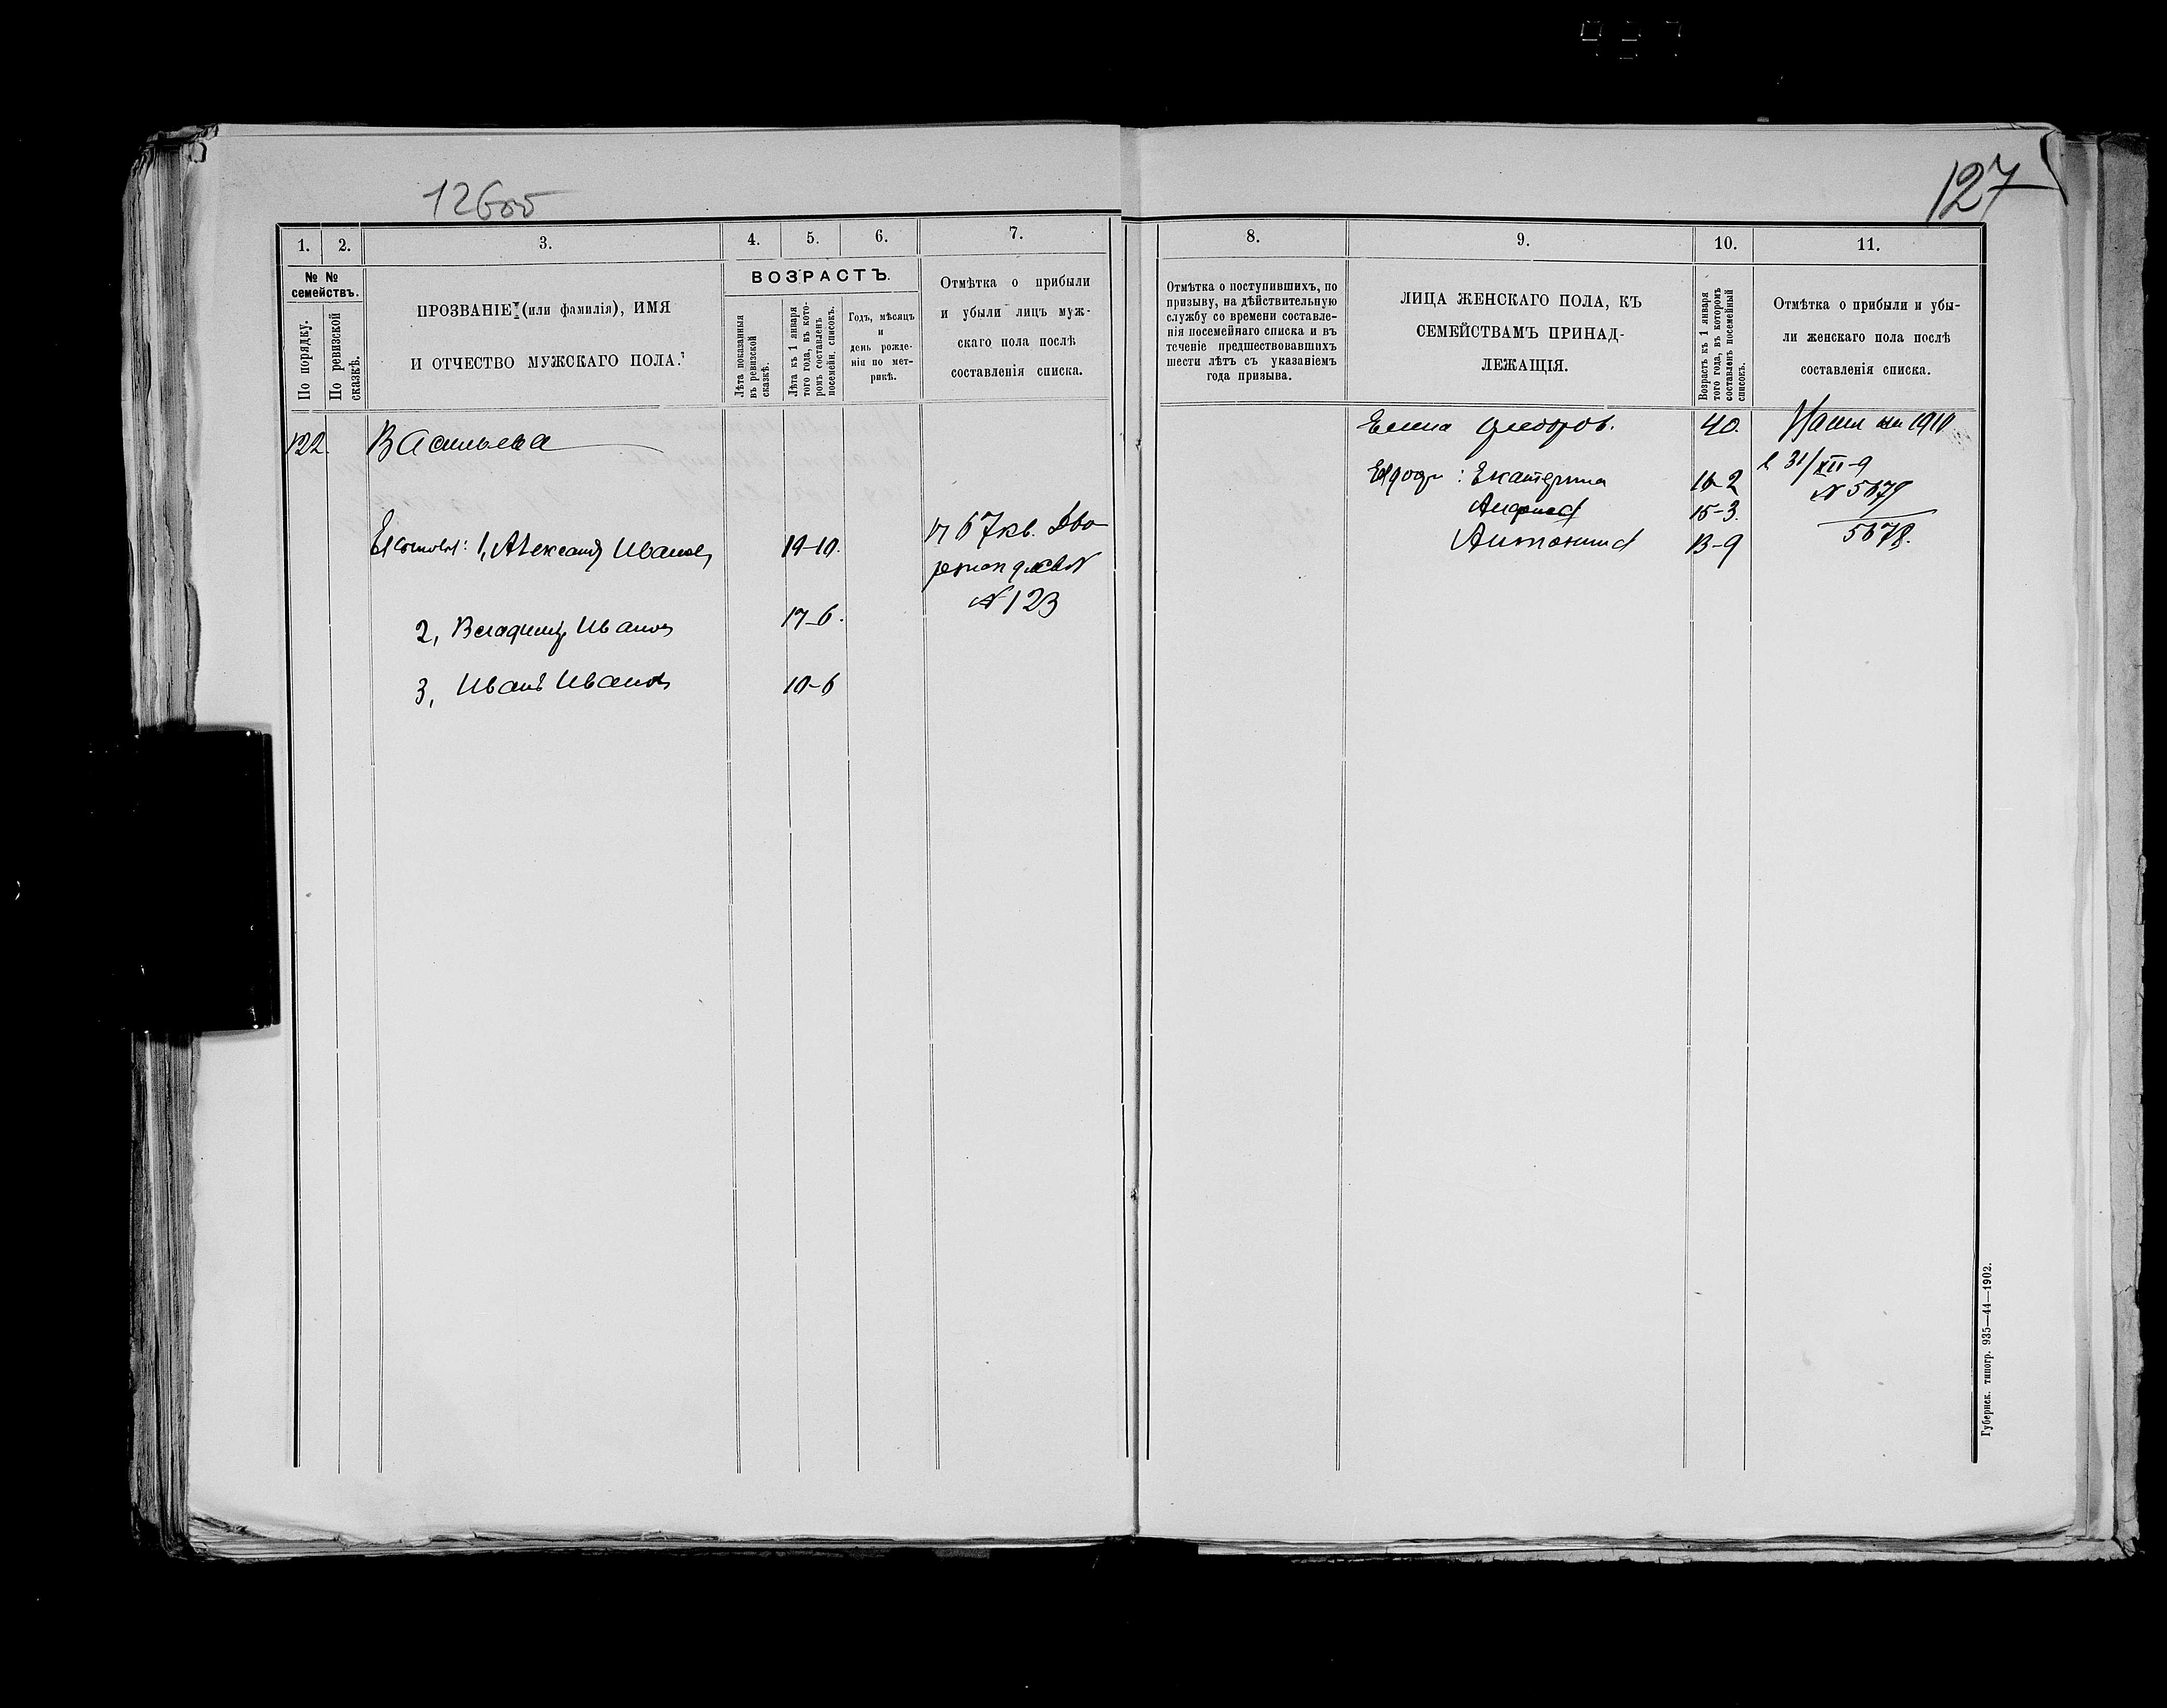 126об
127
1. 2. 3. 4. 5. 6. 7.
№ №
семействъ.
По порядку.
По ревизской
сказкѣ.
ПРОЗВАНІЕ (или фамилія), ИМЯ
И ОТЧЕСТВО МУЖСКАГО ПОЛА.
ВОЗРАСТЪ.
Лѣта показанныя
въ ревизской
сказкѣ.
Лѣта къ 1 января
того года, въ кото-
ромъ составленъ
посемейн. списокъ.
Годъ, мѣсяцъ
и
день рожде-
нія по мет-
рикѣ.
Отмѣтка о прибыли
и убыли лицъ муж-
скаго пола послѣ
составленія списка.
122. Васильева
Ея сыновья: 1, Александр Иванов 19-10.
№ 123
2, Владимір Иванов 17-6.
3, Иванъ Иванов 10-6
8. 9. 10. 11.
Отмѣтка о поступившихъ, по
призыву, на дѣйствительную
службу со времени составле-
нія посемейнаго списка и въ
теченіе предшествовавшихъ
шести лѣтъ съ указаніемъ
года призыва.
ЛИЦА ЖЕНСКАГО ПОЛА, КЪ
СЕМЕЙСТВАМЪ ПРИНАД-
ЛЕЖАЩІЯ.
Возрастъ къ 1 января
того года, въ которомъ
составленъ посемейный
списокъ.
Отмѣтка о прибыли и убы-
ли женскаго пола послѣ
составленія списка.
Федоров. 40. 1910
Ея дочери: Екатерина 16-2
15-3.
Антонина 13-9
31/XII-9
№ 5679
5678.
Губернск. типогр. 935—44—1902.